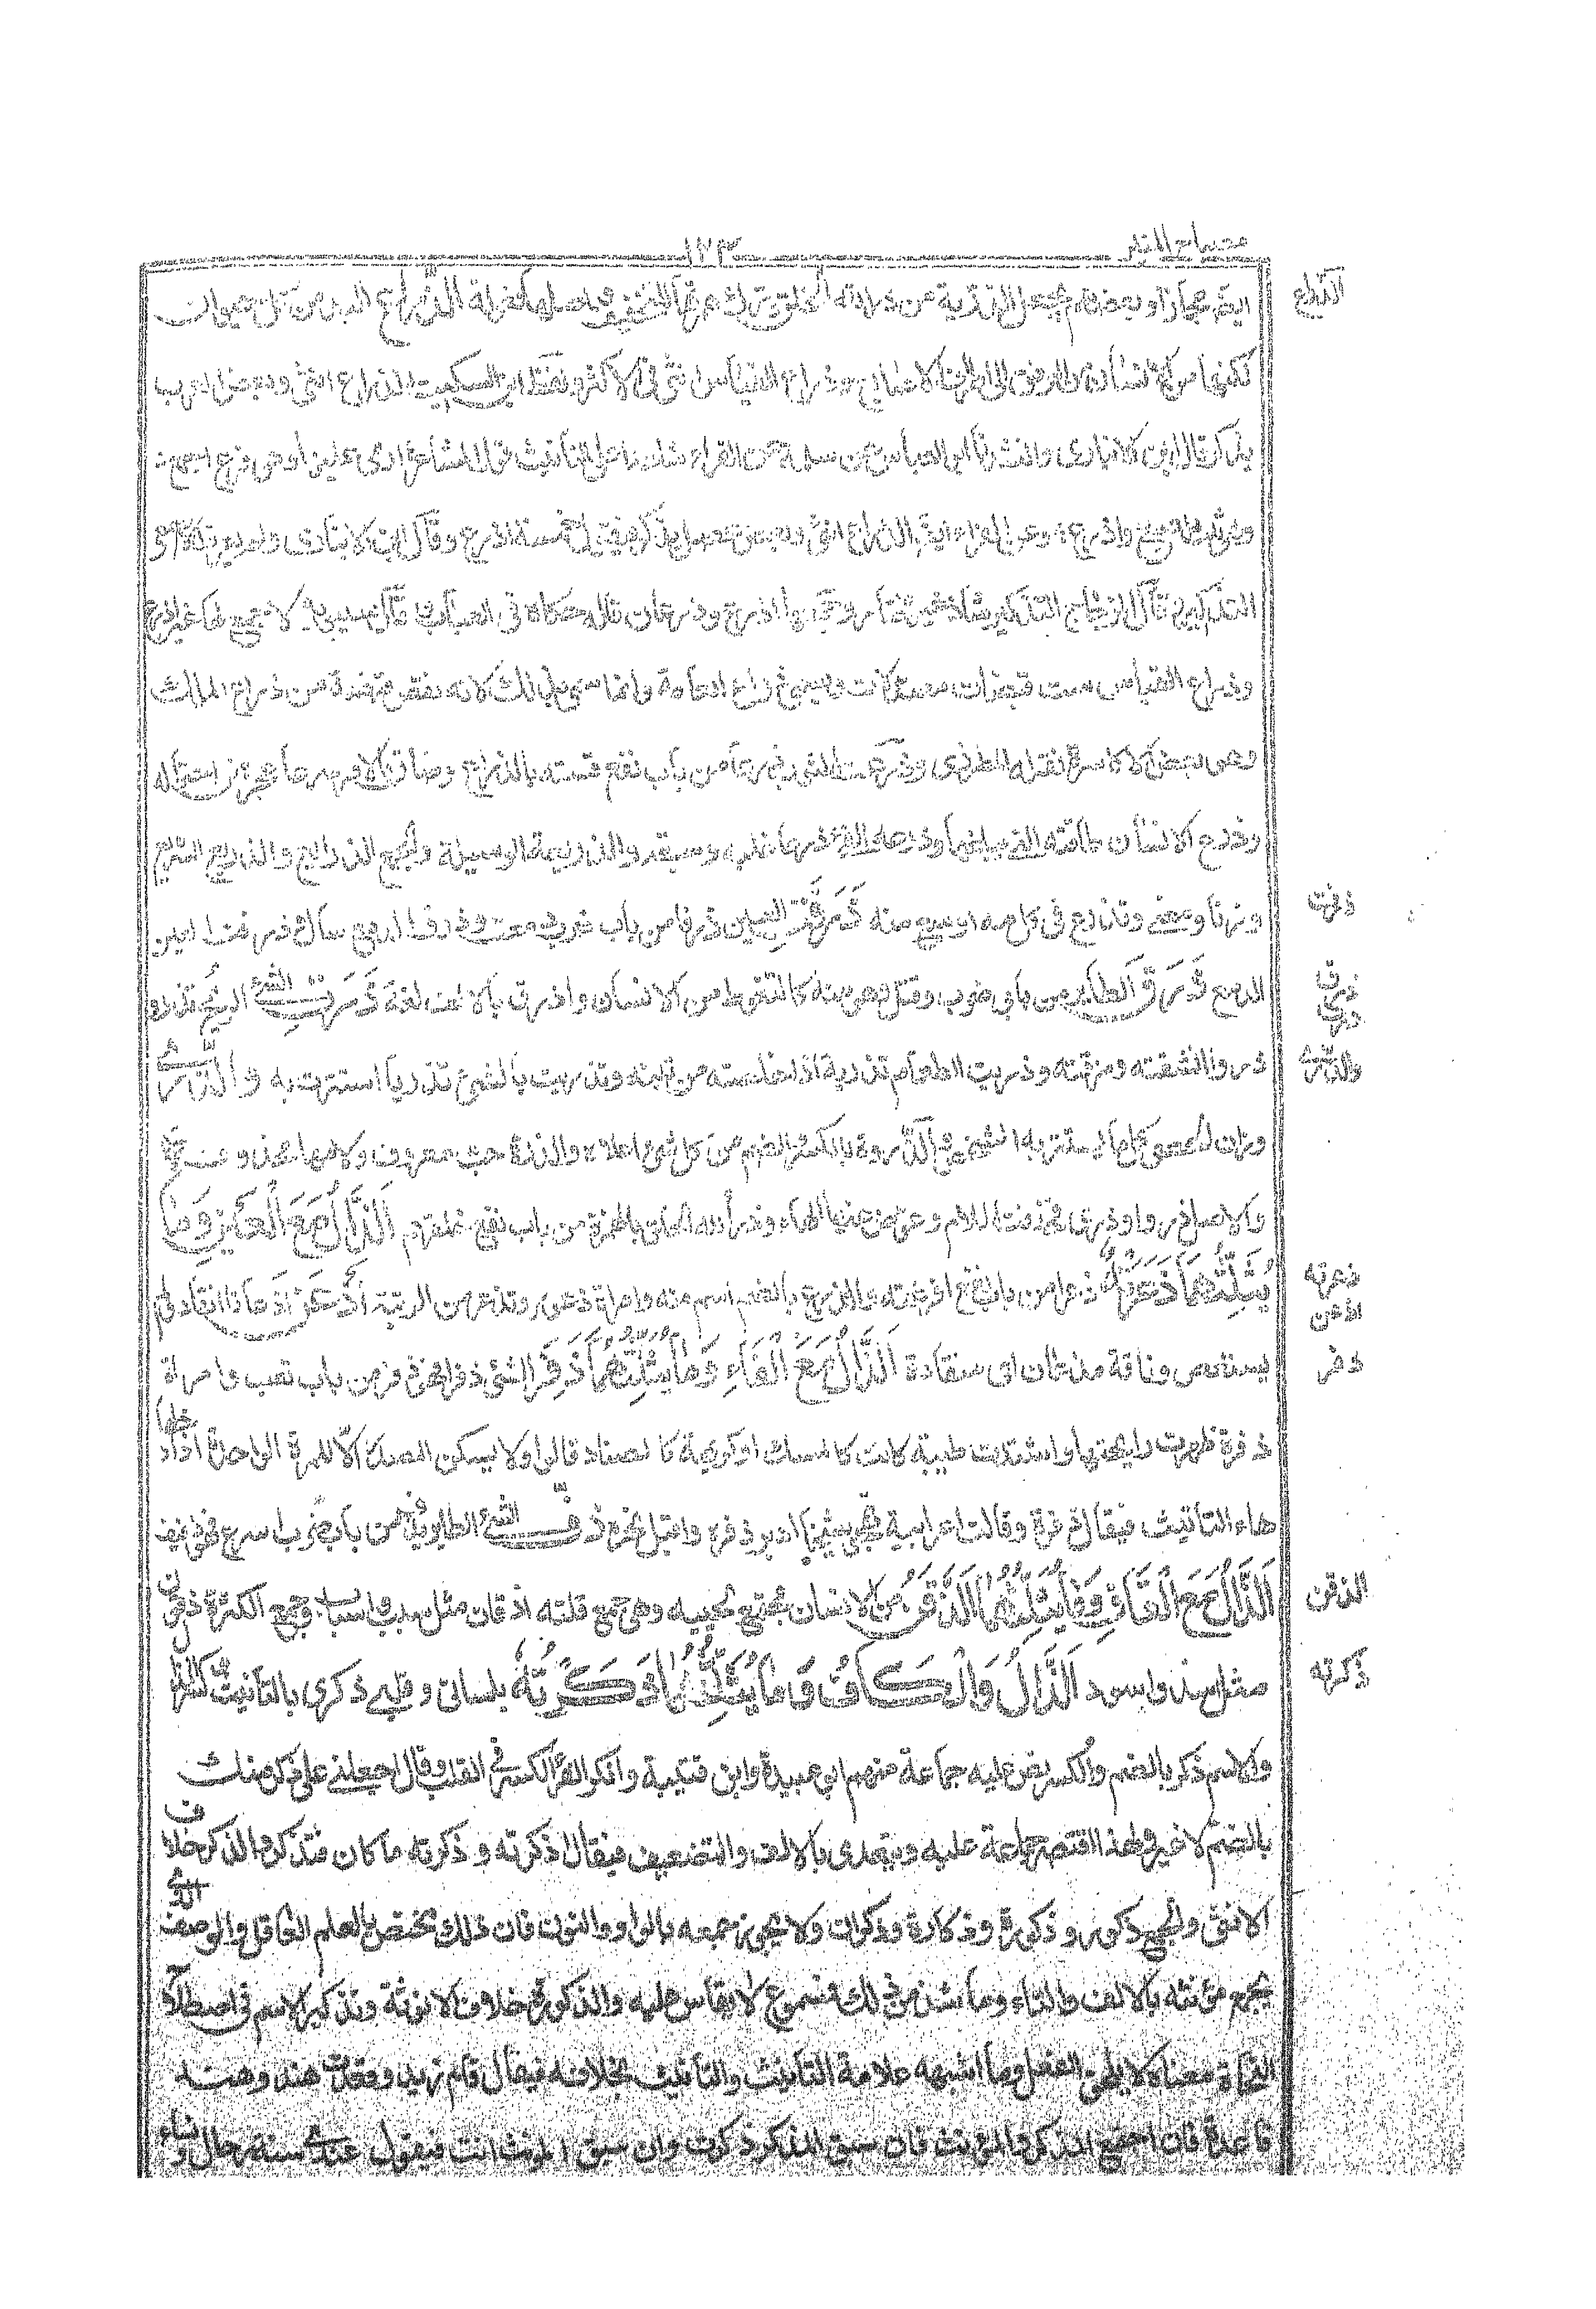 مصباح المنير
١٢٣
الذراع
ايضا مجازا وبعضهم يجعل الذرية من ذرأ الله الخلق وترك همزها للتخفيف الذراع اليد من كل حيوان
لكنها من الانسان من المرفق الى اطراف الاصابع وذراع القياس انثى فى الاكثر ولفظ ابن السكيت الذراع انثى وبعض العرب
يذكر قال ابن الانبارى وانشدنا ابو العباس عن سلمة عن الفراء شاهدا على التأنيث قول الشاعر ارمى عليها وهى فرع اجمع
وهى ثلاث اذرع واصبع وعن الفراء ايضا الذراع انثى وبعض عكل يذكر فيقول خمسة اذرع وقال ابن الانبارى ولم يعرف الاصمعى
التذكير قال الزجاج التذكير شاذ غير مختار وجمعها اذرع وذرعان قاله حكاه فى العباب قال سيبويه لا جمع لها غير اذرع
وذراع القياس ست قبضات معتدلات ويسمى ذراع العامة وانما سمى بذلك لانه نقص قبضة من ذراع الملك
وهو بعض الاكاسرة نقله المطرزى وذرعت الثوب ذرعا من باب نفع قسته بالذراع وضاق بالامر ذرعا عجز عن احتماله
وذرع الانسان طاقته التى يبلغها وذرعه القئ ذرعا غلبه وسبقه والذريعة الوسيلة والجمع الذرائع والذريع السريع
ذرفت
وزنا ومعنى وتذارع فى كلامه اوسع منه ذَرَفَتِ العين ذرفا من باب ضرب دمعت وذرف الدمع سال وذرفت العين
ذرق
ذرت
الدمع ذَرَقَ الطَّائِر من بابى ضرب وقتل وهو منه كالتغوط من الانسان واذرق بالالف لغة ذَرَتِ الشئ الريح تذروه
والذرى
ذروا نسفته وفرقته وذريت الطعام تذرية اذا خلصته من تبنه وتذريت بالشئ تذريا استترت به والذَّرى
وزان الحصى كل ما يستتر به الشخص والذروة بالكسر والضم من كل شئ اعلاه والذرة حب معروف ولامها محذوفة
والاصل ذرو او ذرى فحذفت اللام وعوض عنها الهاء وذرأ الله الخلق بالهمزة من باب نفع خلقهم اَلذَّالُ مَعَ الْعَيْنِ وَمَا
ذعرته
اذعن
يُثَلِّثُهُمَا ذَعَرْتُهُ ذعرا من باب نفع افزعته والذعر بالضم اسم منه وامراة ذعور تذعر من الريبة أَذْعَنَ اذعانا انقاد ولم
ذفر
يستعص وناقة مذعان اى منقادة اَلذَّالُ مَعَ الْفَاءِ وَمَا يُثَلِّثُهُمَا ذَفِرَ الشئ ذفرا فهو ذفر من باب تعب وامراة
ذفرة ظهرت رايحتها واشتدت طيبة كانت كالمسك او كريهة كالصنان قالوا ولا يسكن المصدر الا للمرة الواحدة اذا دخلها
هاء التانيث فيقال ذفرة وقالت اعرابية تهجو شيخا ادبر ذفره واقبل بخره ذفَّ الشئ من باب ضرب اسرع فهو ذفيف
الذقن
اَلذَّالُ مَعَ الْقَافِ وَمَا يُثَلِّثُهُمَا اَلذَّقَنُ من الانسان مجتمع لحييه وهى جمع قلته اذقان مثل سبب واسباب وجمع الكثرة ذقون
ذكرته
مثل اسد واسود اَلذَّالُ وَالْكَافُ وَمَا يُثَلِّثُهُمَا ذَكَرْتُهُ بلسانى وقلبى ذكرى بالتانيث وكسر الذال
والاسم ذكر بالضم والكسر نص عليه جماعة منهم ابو عبيدة وابن قتيبة وانكر الفراء الكسر فى القلب وقال اجعلنى على ذكر منك
بالضم لا غير ولهذا اقتصر جماعة عليه ويتعدى بالالف والتضعيف فيقال اذكرته وذكرته ما كان فتذكر والذكر خلاف
الانثى والجمع ذكور وذكورة وذكارة وذكران ولا يجوز جمعه بالواو والنون فان ذلك مختص بالعلم العاقل والوصف الذى
يجمع مؤنثه بالالف والتاء وما شذ من ذلك فمسموع لا يقاس عليه والذكورة خلاف الانوثة وتذكير الاسم فى اصطلاح
النحاة معناه لا يلحق الفعل وما اشبهه علامة التأنيث والتأنيث بخلافه فيقال قام زيد وقعدت هند وهند
قاعدة فان اجتمع المذكر والمؤنث فان سبق المذكر ذكرت وان سبق المؤنث انثت فيقول عندى ستة رجال ونساء